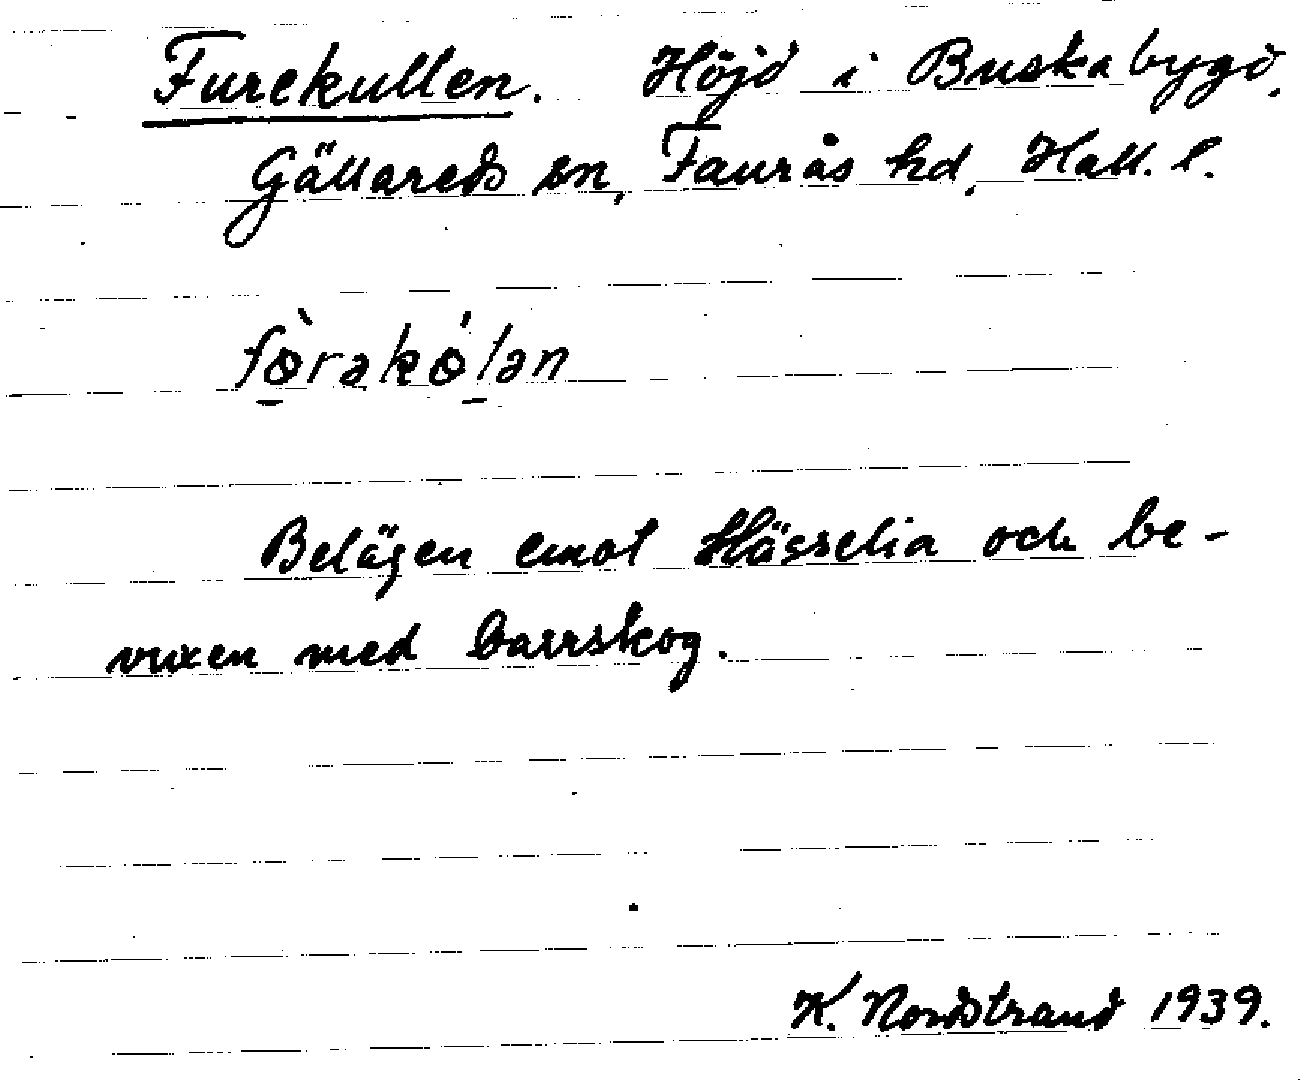 Furekullen. Höjd i Buskabygd,
Gällareds sn, Faurås hd, Hall. l.
fò̱rəkó̱lən
Belägen emot Hässelia och be-
vuxen med barrskog.
K. Nordstrand 1939.